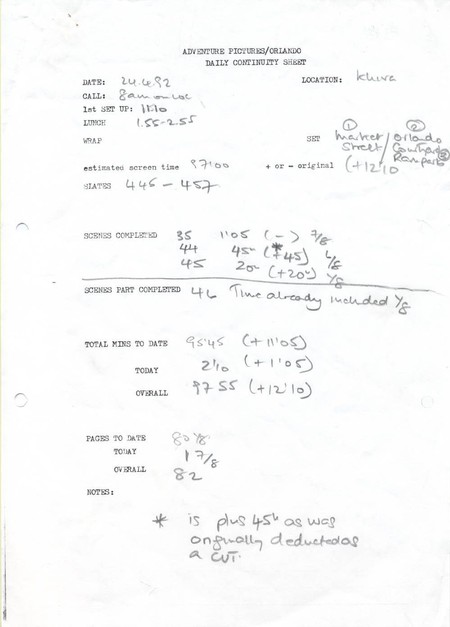 ADVENTURE PICTURES/ORLANDO
DAILY CONTINUITY SHEET
DATE: 24.4.92 LOCATION: Khiva
CALL: 8am on loc
1st SET UP: 11.10
LUNCH 1.55-2.55
WRAP SET ① Market Street/ ② Orlando Courtyard Ramparts ③
estimated screen time 97'00 + or - original (+12'10
SLATES 445 - 457
SCENES COMPLETED 35 1'05 (-) 7/8
44 45" (*+45)
45 20" (+20") 1/8
SCENES PART COMPLETED 46 Time already included 1/8
TOTAL MINS TO DATE 95'45 (+11'05)
TODAY 2'10 (+1'05)
OVERALL 97 55 (+12'10)
PAGES TO DATE 80 1/8
TODAY 1 7/8
OVERALL 82
NOTES:
* is plus 45" as was
originally deducted as
a CUT.